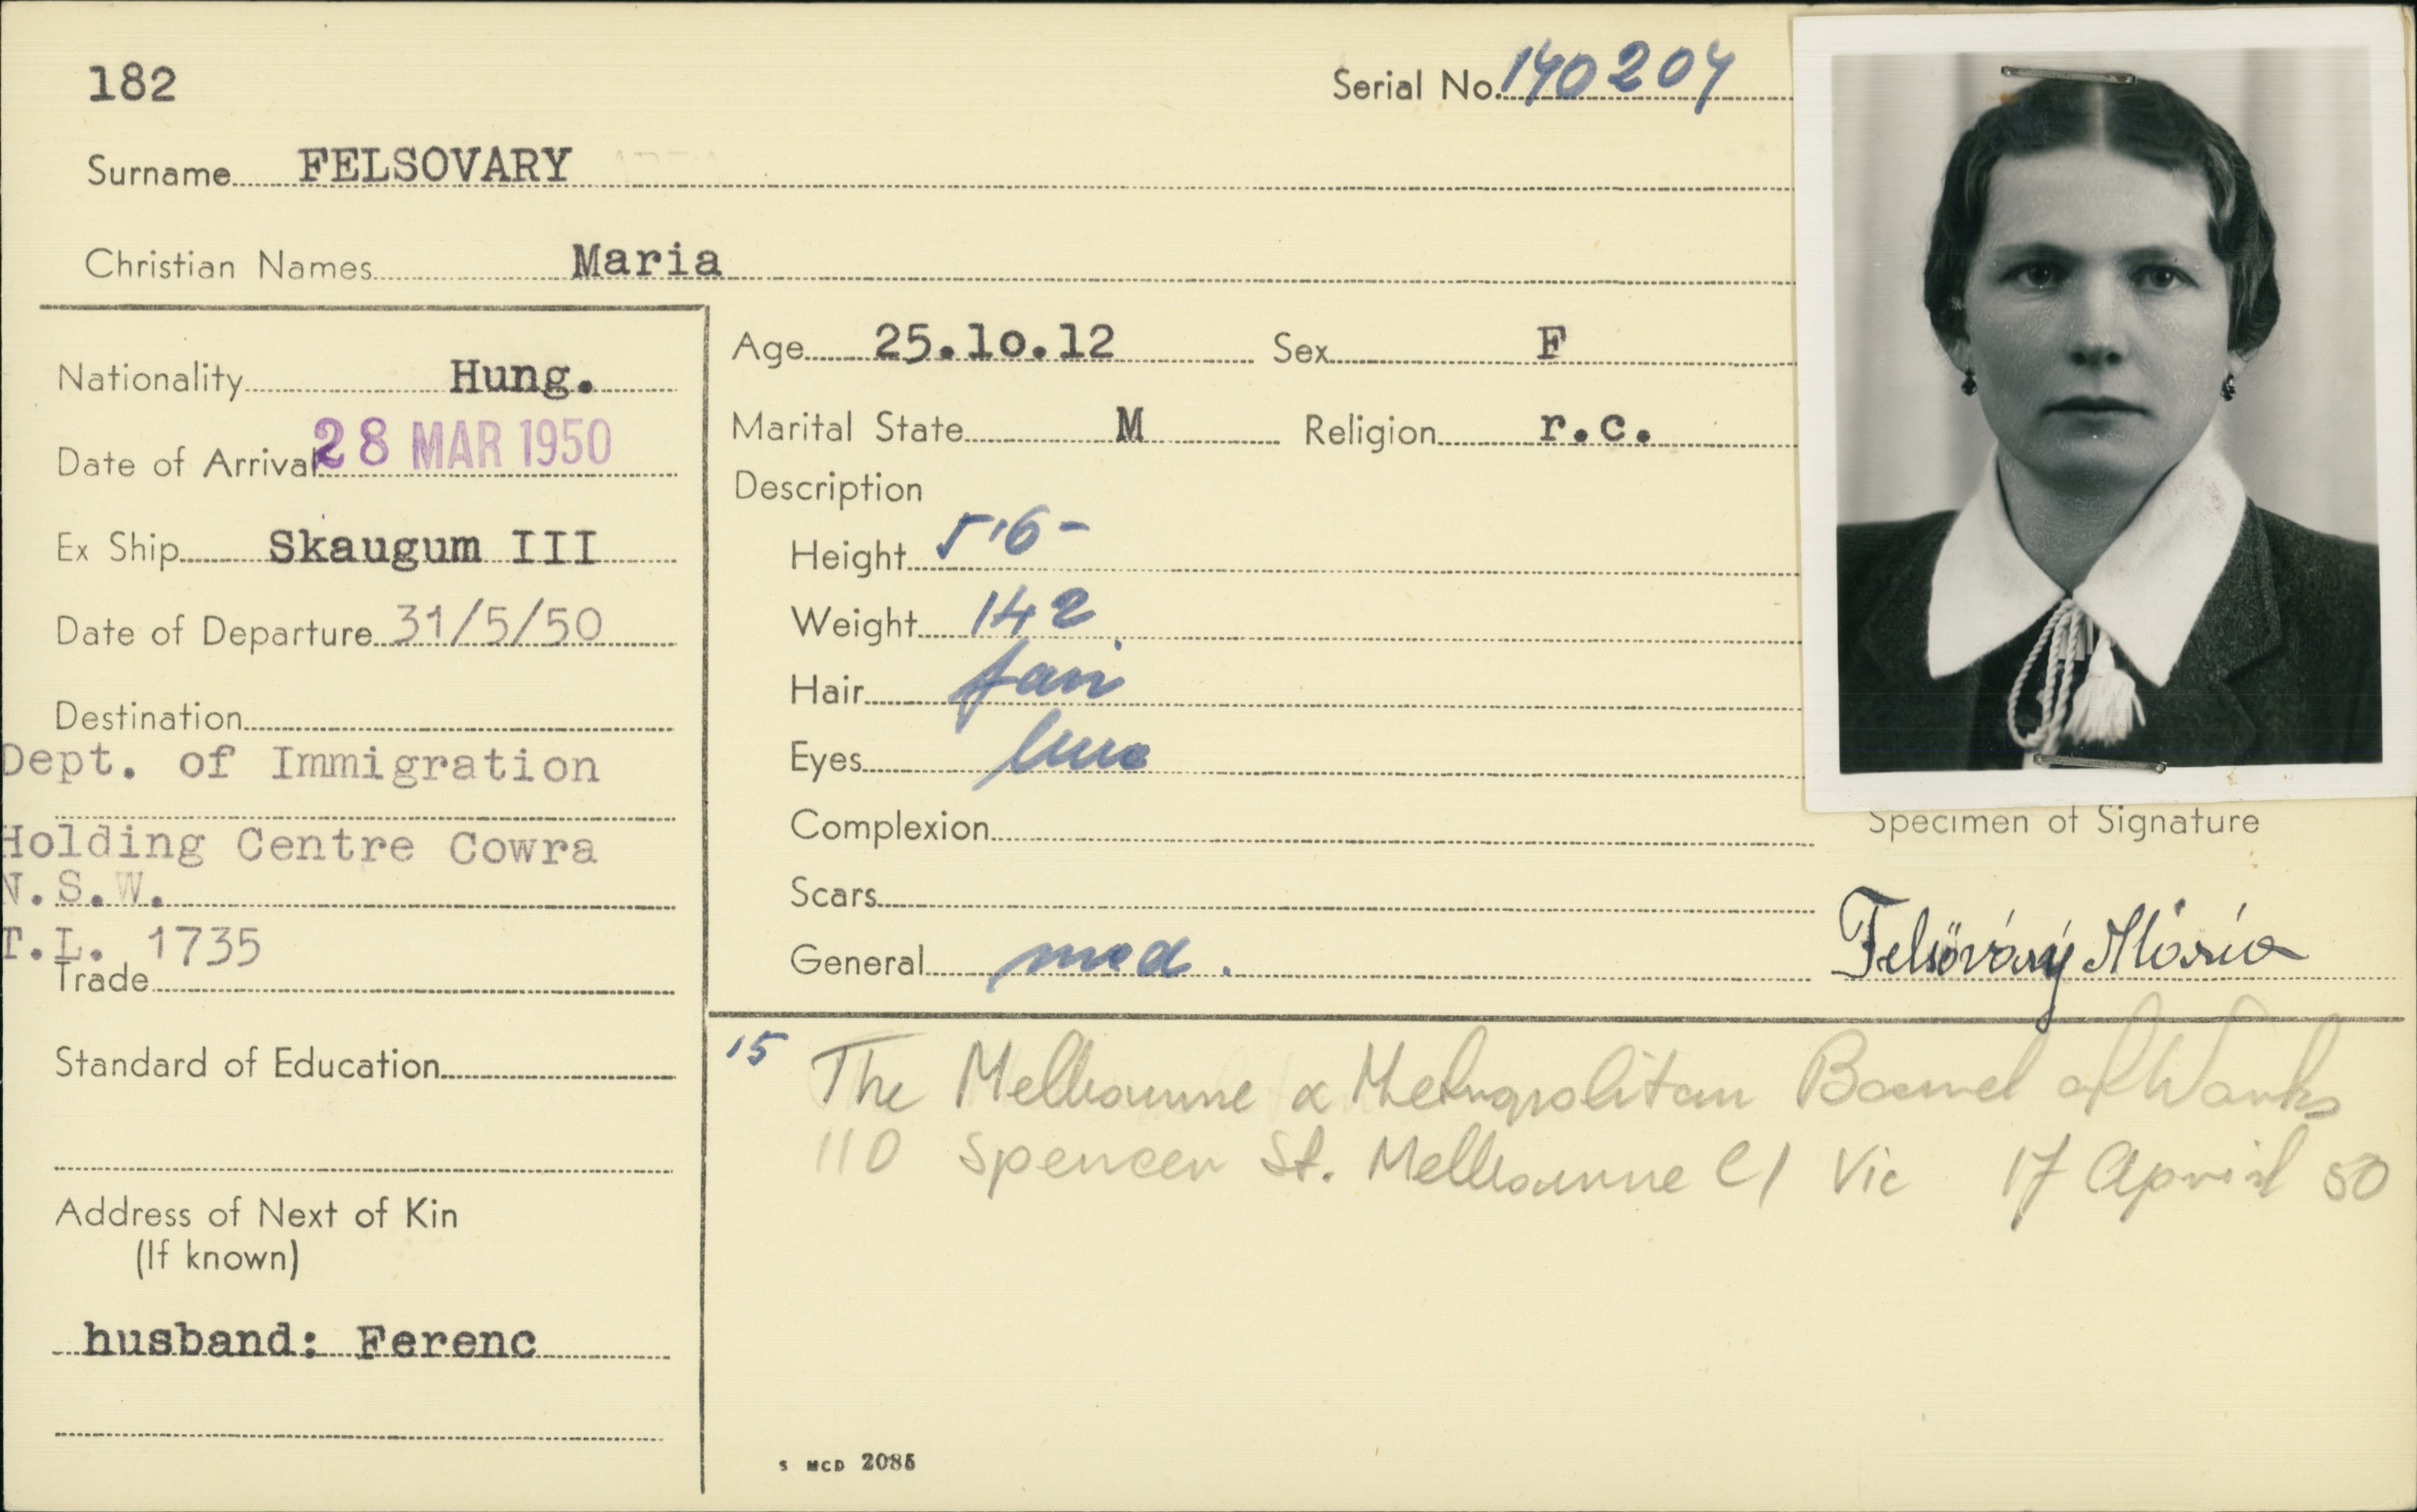 182
Serial No. 140204
Surname FELSOVARY
Christian Names Maria
Nationality Hung.
Date of Arrival 28 MAR 1950
Ex Ship Skaugum III
Date of Departure 31/5/50
Destination
Dept. of Immigration
Holding Centre Cowra
N.S.W.
T.L. 1735
Trade
Standard of Education
Address of Next of Kin
(If known)
husband: Ferenc
Age 25.10.12 Sex F
Marital State M Religion r.c.
Description
Height 5'6-
Weight 142
Hair fair
Eyes blue
Complexion
Scars
General med.
Specimen of Signature
Felsőváry Mária
15 The Melbourne & Metropolitan Board of Works
110 Spencer St. Melbourne C1 Vic 17 April 50
S MCD 2085